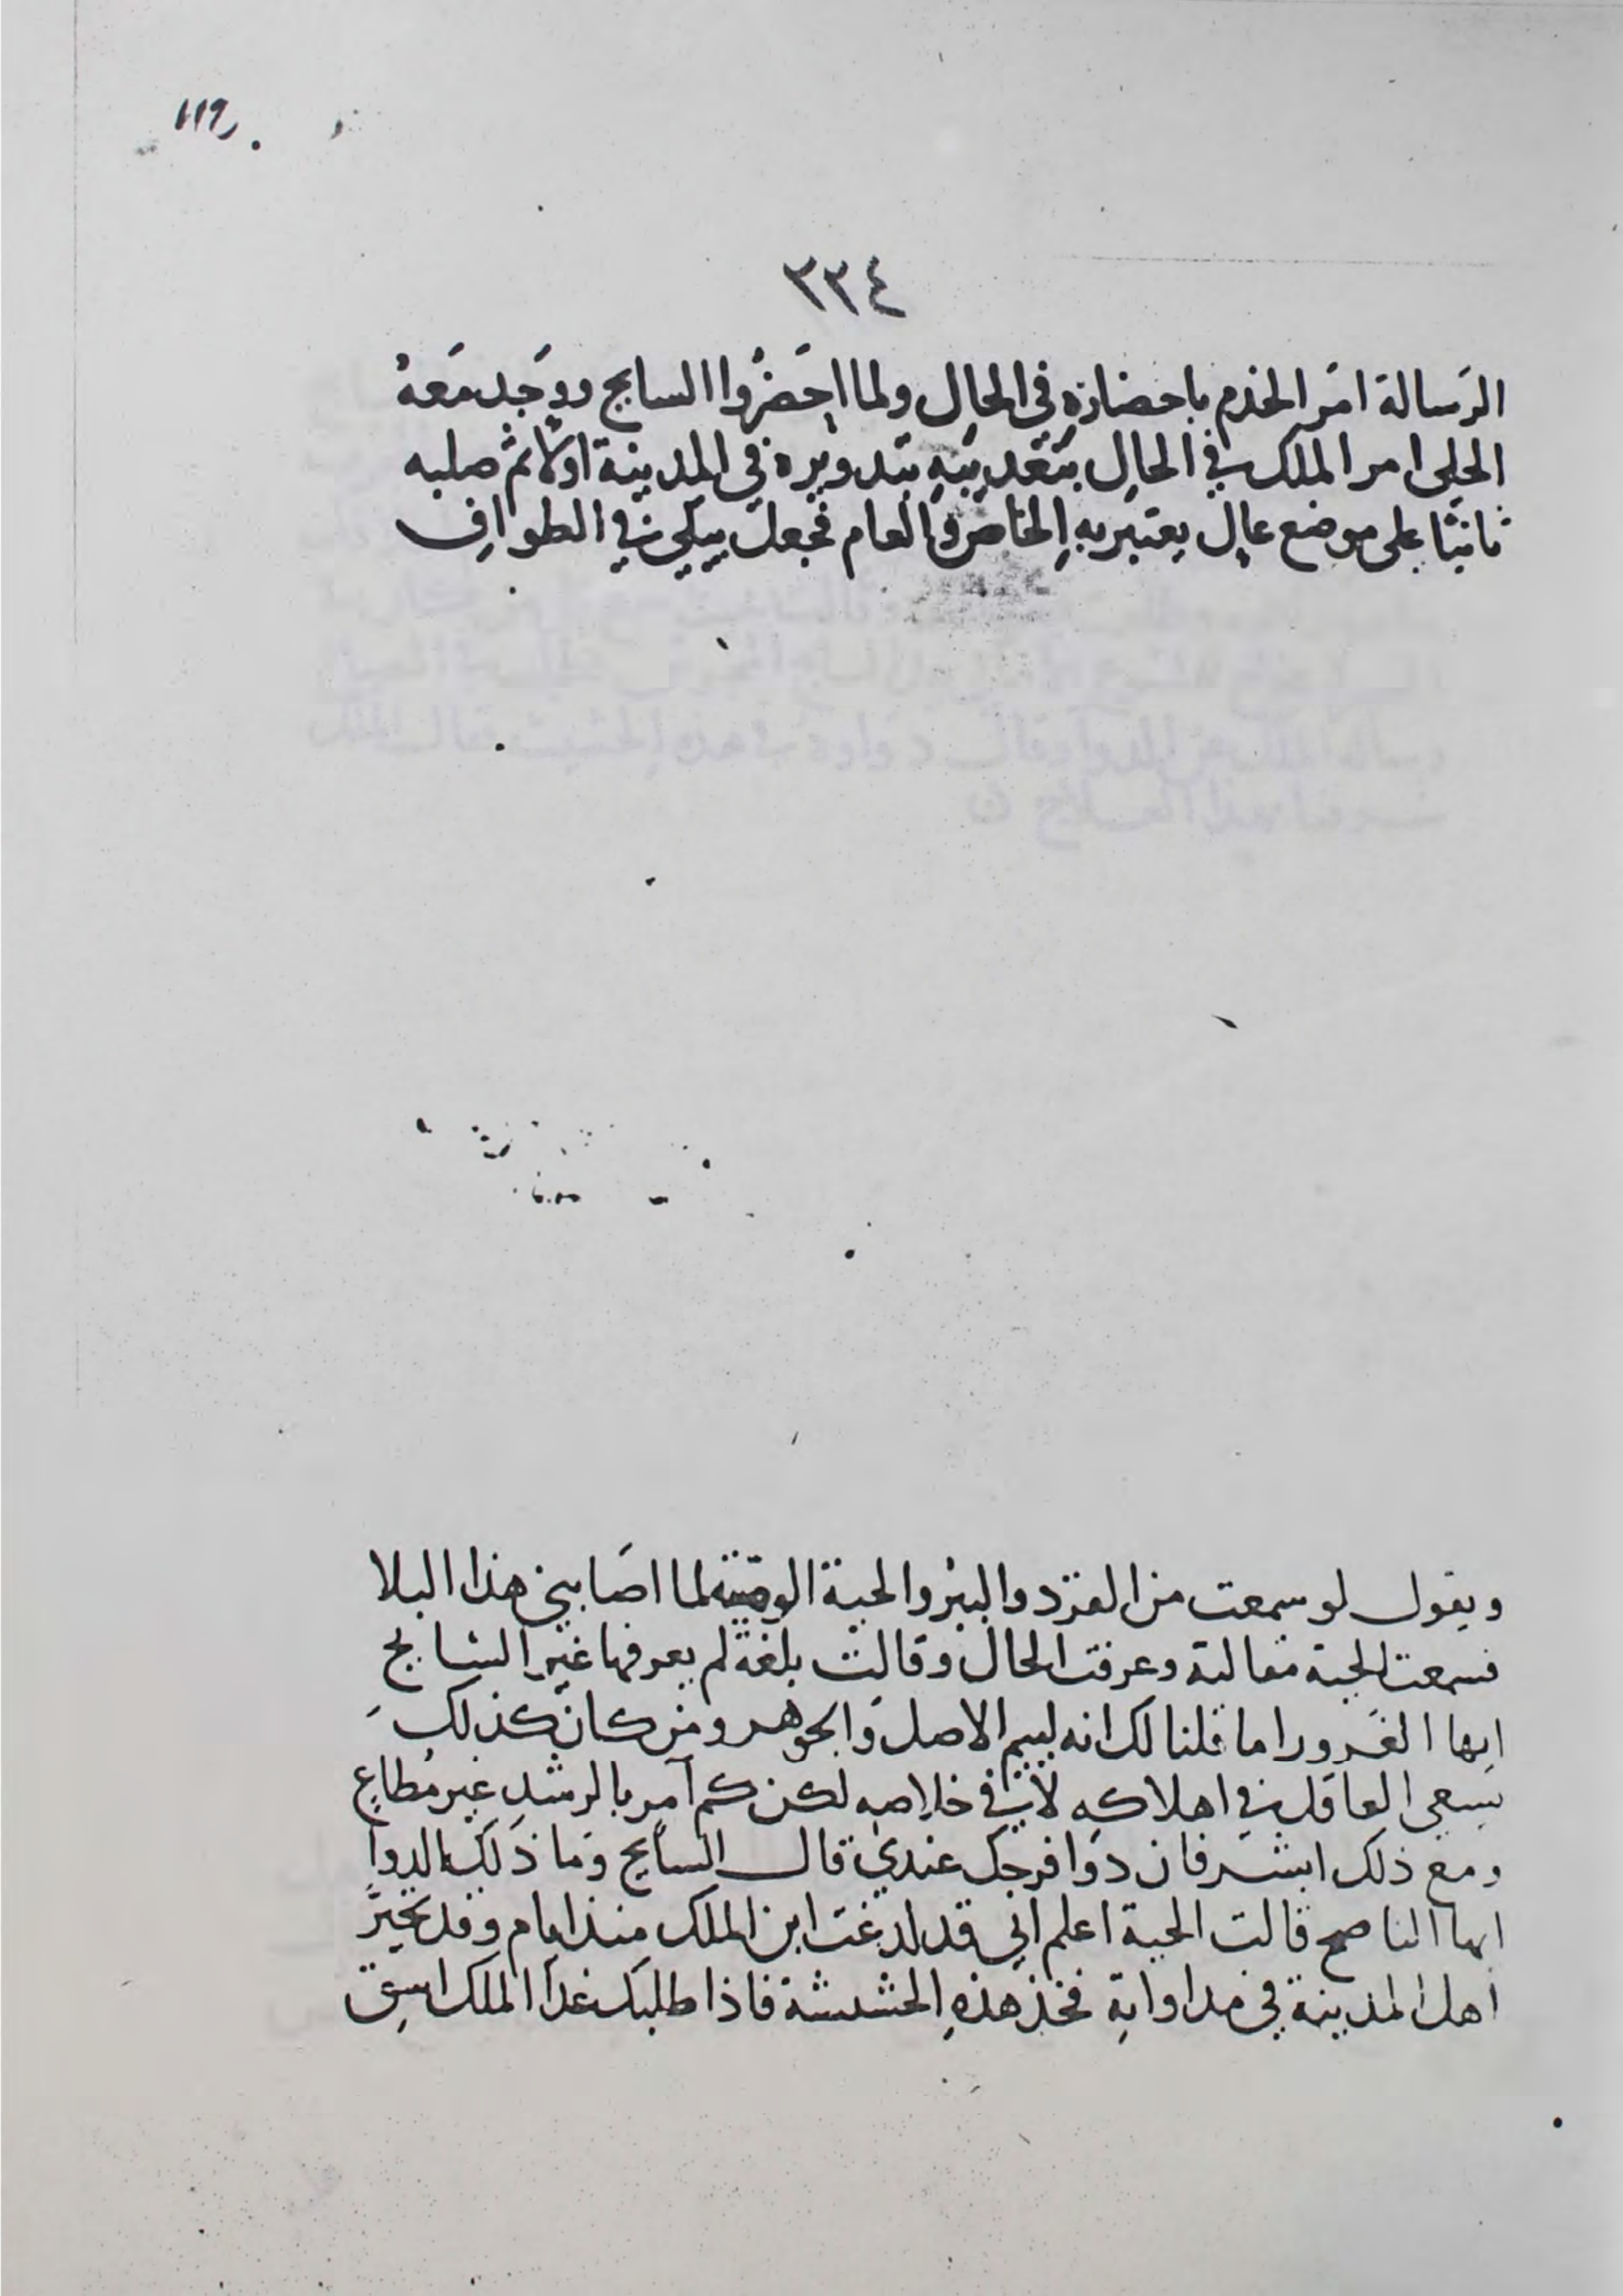 ١١٩
٢٢٤
الرَسالة امَر الخدم باحضاره في الحال ولما احَضرُوا السايح ووَجد مَعهُ
الحلى امر الملك في الحال بتعذيبه بتدويره في المدينة اولاً ثم صلبه
ثانيًا على موضع عال يعتبر به الخاص والعام فجعل يبكي في الطواف
ويقول لو سمعت من القرد والببر والحية الوصية لما اصَابني هذا البلا
فسمعت الحية مقالته وعرفت الحال وقالت بلغة لم يعرفها غير السايح
ايها الغرور اما قلنا لك انه لييم الاصل والجوهر ومن كان كذلك
يسعى العاقل في اهلاكه لا في خلاصه لكن كم آمر بالرشد غير مُطاع
ومع ذلك ابشر فان دوا فرجك عندي قال السايح وما ذلك الدوا
ايها الناصح قالت الحية اعلم اني قد لدغت ابن الملك منذ ايام وقد تحيرّ
اهل المدينة في مداواته فخذ هذه الحشيشة فاذا طلبك غداً الملك اسق